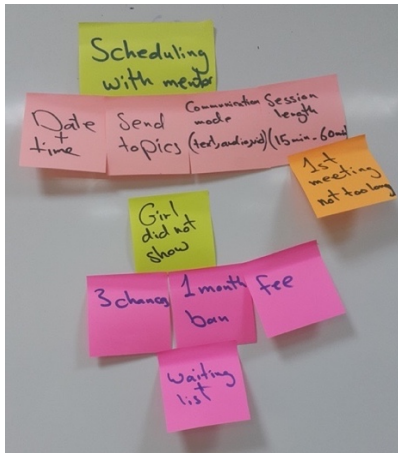 Scheduling
with mentor
Date
+
time
Send
topics
Communication
mode
(text, audio, vid)
Session
length
(15 min. 60 min)
1st
meeting
not too long
Girl
did not
show
3 chances
1 month
ban
Fee
Waiting
list